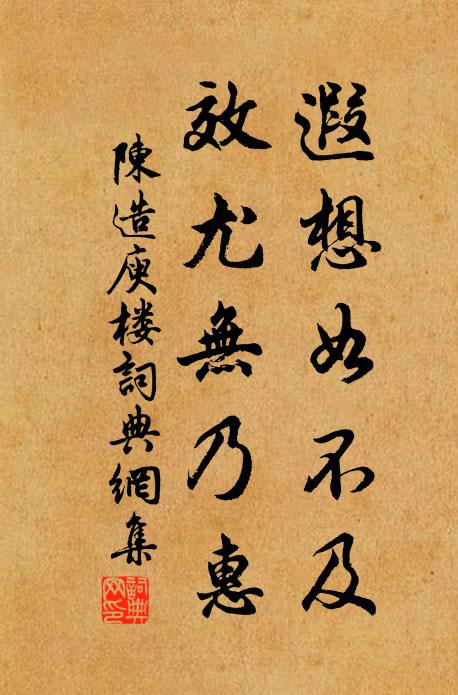 遐想如不及
效尤無乃惠
陳造庾楼詞典網集
詞典网印